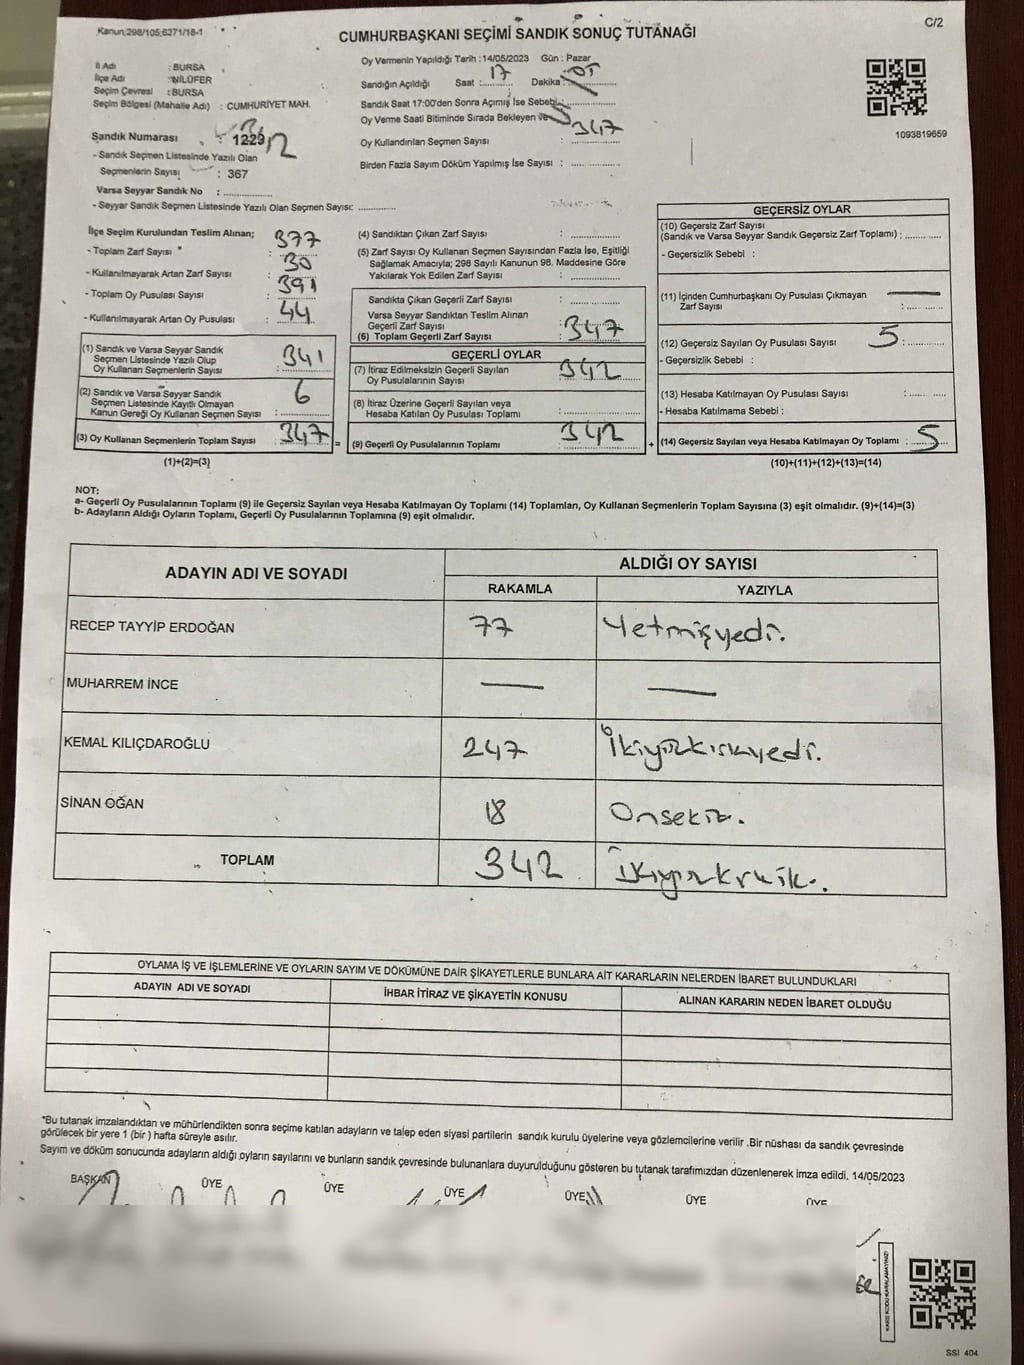 Kanun:298/105,6271/18-1
C/2
CUMHURBAŞKANI SEÇİMİ SANDIK SONUÇ TUTANAĞI
İl Adı : BURSA
İlçe Adı : NİLÜFER
Seçim Çevresi : BURSA
Seçim Bölgesi (Mahalle Adı) : CUMHURİYET MAH.
Sandık Numarası : 1229
- Sandık Seçmen Listesinde Yazılı Olan
Seçmenlerin Sayısı : 367
Varsa Seyyar Sandık No : ..............
- Seyyar Sandık Seçmen Listesinde Yazılı Olan Seçmen Sayısı: ............
Oy Vermenin Yapıldığı Tarih :14/05/2023 Gün : Pazar
Sandığın Açıldığı Saat : 17 Dakika : 05
Sandık Saat 17:00'den Sonra Açımış İse Sebebi:..............
Oy Verme Saati Bitiminde Sırada Bekleyen ve
Oy Kullandırılan Seçmen Sayısı : 347
Birden Fazla Sayım Döküm Yapılmış İse Sayısı : ..............
1093819659
İlçe Seçim Kurulundan Teslim Alınan;
- Toplam Zarf Sayısı : 377
- Kullanılmayarak Artan Zarf Sayısı : 30
- Toplam Oy Pusulası Sayısı : 391
- Kullanılmayarak Artan Oy Pusulası : 44
(1) Sandık ve Varsa Seyyar Sandık
Seçmen Listesinde Yazılı Olup
Oy Kullanan Seçmenlerin Sayısı : 341
(2) Sandık ve Varsa Seyyar Sandık
Seçmen Listesinde Kayıtlı Olmayan
Kanun Gereği Oy Kullanan Seçmen Sayısı : 6
(3) Oy Kullanan Seçmenlerin Toplam Sayısı : 347 =
(1)+(2)=(3)
(4) Sandıktan Çıkan Zarf Sayısı : ..............
(5) Zarf Sayısı Oy Kullanan Seçmen Sayısından Fazla İse, Eşitliği
Sağlamak Amacıyla; 298 Sayılı Kanunun 98. Maddesine Göre
Yakılarak Yok Edilen Zarf Sayısı : ..............
Sandıkta Çıkan Geçerli Zarf Sayısı : ..............
Varsa Seyyar Sandıktan Teslim Alınan
Geçerli Zarf Sayısı
(6) Toplam Geçerli Zarf Sayısı : 347
GEÇERLİ OYLAR
(7) İtiraz Edilmeksizin Geçerli Sayılan
Oy Pusulalarının Sayısı : 342
(8) İtiraz Üzerine Geçerli Sayılan veya
Hesaba Katılan Oy Pusulası Toplamı : ..............
(9) Geçerli Oy Pusulalarının Toplamı : 342 +
GEÇERSİZ OYLAR
(10) Geçersiz Zarf Sayısı
(Sandık ve Varsa Seyyar Sandık Geçersiz Zarf Toplamı) : ..............
- Geçersizlik Sebebi :
(11) İçinden Cumhurbaşkanı Oy Pusulası Çıkmayan
Zarf Sayısı : ..............
(12) Geçersiz Sayılan Oy Pusulası Sayısı 5 : ..............
- Geçersizlik Sebebi :
(13) Hesaba Katılmayan Oy Pusulası Sayısı : ..............
- Hesaba Katılmama Sebebi :
(14) Geçersiz Sayılan veya Hesaba Katılmayan Oy Toplamı : 5
(10)+(11)+(12)+(13)=(14)
NOT:
a- Geçerli Oy Pusulalarının Toplamı (9) ile Geçersiz Sayılan veya Hesaba Katılmayan Oy Toplamı (14) Toplamları, Oy Kullanan Seçmenlerin Toplam Sayısına (3) eşit olmalıdır. (9)+(14)=(3)
b- Adayların Aldığı Oyların Toplamı, Geçerli Oy Pusulalarının Toplamına (9) eşit olmalıdır.
ADAYIN ADI VE SOYADI ALDIĞI OY SAYISI
RAKAMLA YAZIYLA
RECEP TAYYİP ERDOĞAN 77 Yetmişyedi.
MUHARREM İNCE — —
KEMAL KILIÇDAROĞLU 247 İkiyüzkırkyedi.
SİNAN OĞAN 18 Onsekiz.
TOPLAM 342 İkiyüzkırkiki.
OYLAMA İŞ VE İŞLEMLERİNE VE OYLARIN SAYIM VE DÖKÜMÜNE DAİR ŞİKAYETLERLE BUNLARA AİT KARARLARIN NELERDEN İBARET BULUNDUKLARI
ADAYIN ADI VE SOYADI İHBAR İTİRAZ VE ŞİKAYETİN KONUSU ALINAN KARARIN NEDEN İBARET OLDUĞU
*Bu tutanak imzalandıktan ve mühürlendikten sonra seçime katılan adayların ve talep eden siyasi partilerin sandık kurulu üyelerine veya gözlemcilerine verilir .Bir nüshası da sandık çevresinde
görülecek bir yere 1 (bir ) hafta süreyle asılır.
Sayım ve döküm sonucunda adayların aldığı oyların sayılarını ve bunların sandık çevresinde bulunanlara duyurulduğunu gösteren bu tutanak tarafımızdan düzenlenerek imza edildi. 14/05/2023
BAŞKAN ÜYE ÜYE ÜYE ÜYE ÜYE ÜYE
KARE KODU KARALAMAYINIZ!
SSI 404